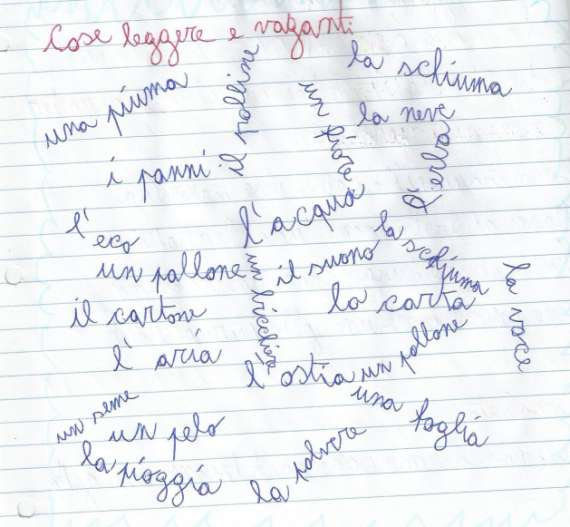 Cose leggere e vaganti
la schiuma
una piuma
il polline
un fiore
la neve
l'erba
i panni
l'acqua
l'eco
la schiuma
un pallone
il suono
la voce
il cartone
un bicchiere
la carta
l'aria
l'ostia
un pallone
una foglia
un seme
un pelo
la pioggia
la polvere